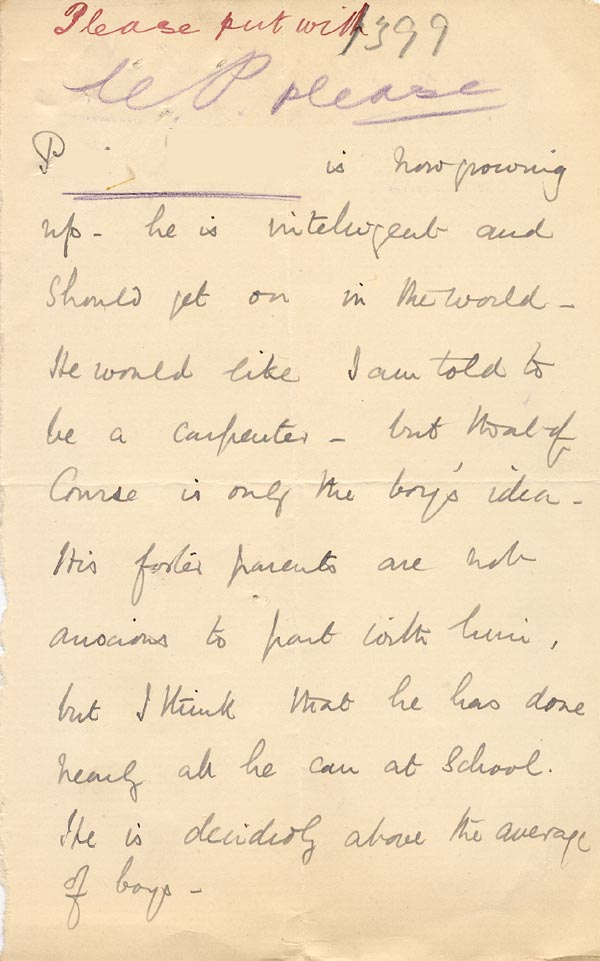 Please put with 1399
C.P. please
P is now growing
up - he is intelligent and
Should get on in the world -
He would like I am told to
be a carpenter - but that of
Course is only the boy's idea -
His foster parents are not
anxious to part with him,
but I think that he has done
nearly all he can at School.
He is decidedly above the average
of boys -